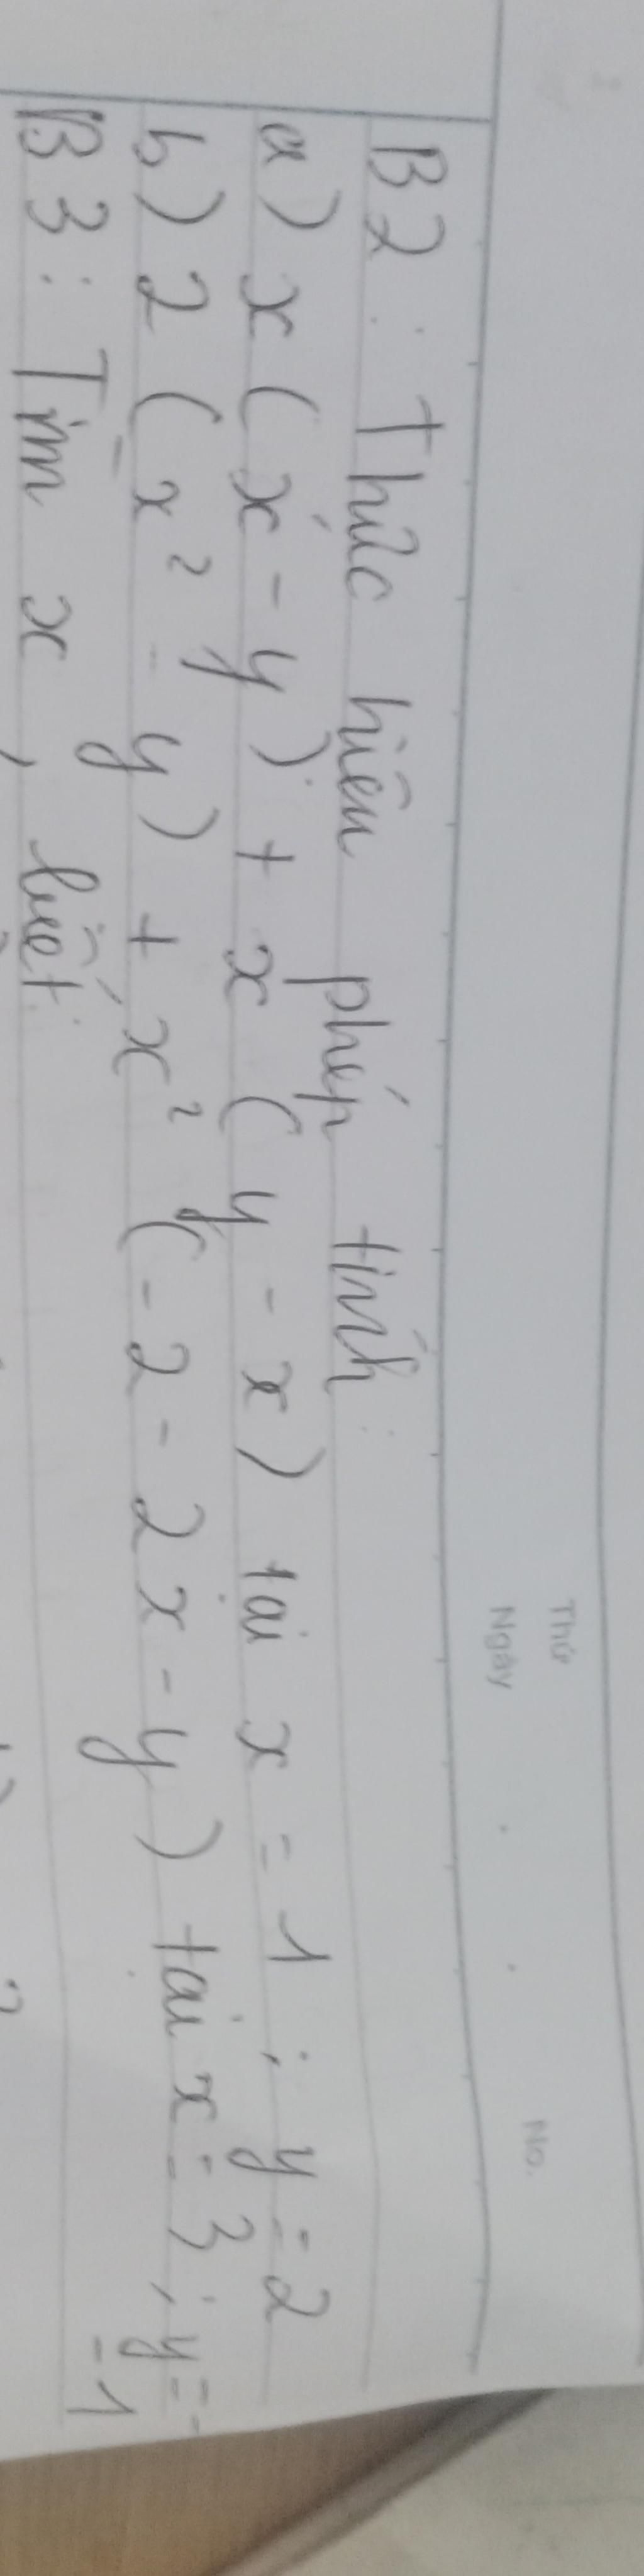 Thứ
Ngày
No.
B2: Thức hiên phép tính:
a) x(x-y)+x(y-x) tại x=1; y=2
b) 2(x²-y)+x²(-2-2x-y) tại x=3; y=
-1
B3: Tìm x, biết: